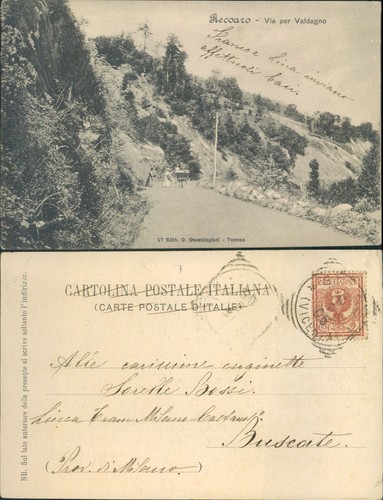 Recoaro - Via per Valdagno
Franca e Lina inviano
affettuosi baci
57 Edit. G. Onestinghel - Verona
CARTOLINA POSTALE ITALIANA
(CARTE POSTALE D'ITALIE)
NB. Sul lato anteriore della presente si scrive soltanto l'indirizzo.
Alle carissime cuginette
Sorelle Bossi.
Linea Tram Milano
Buscate.
(Prov. di Milano)